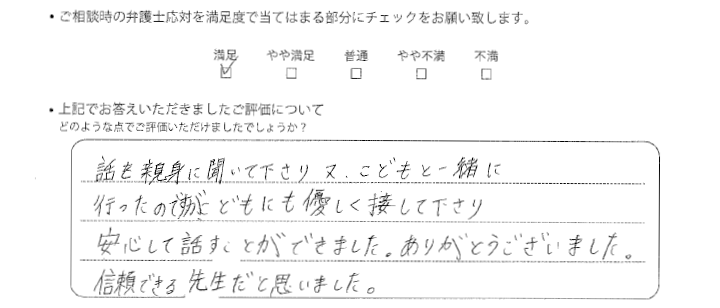 ・ご相談時の弁護士応対を満足度で当てはまる部分にチェックをお願い致します。
満足 やや満足 普通 やや不満 不満
・上記でお答えいただきましたご評価について
どのような点でご評価いただけましたでしょうか?
話を親身に聞いて下さり又、こどもと一緒に
行ったのですがこどもにも優しく接して下さり
安心して話すことができました。ありがとうございました。
信頼できる先生だと思いました。